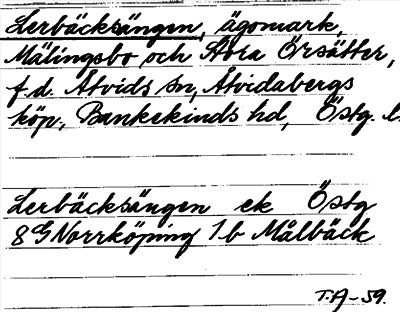 Lerbäcksängen, ägomark,
Mälingsbo och Stora Örsätter,
f.d. Åtvids sn, Åtvidabergs
köp., Bankekinds hd, Östg. l.
Lerbäcksängen ek Östg
8G Norrköping 1b Målbäck
T.A-59.